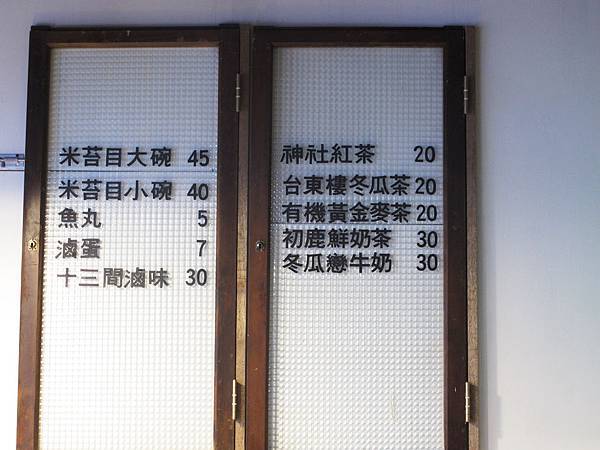 米苔目大碗 45
米苔目小碗 40
魚丸 5
滷蛋 7
十三間滷味 30
神社紅茶 20
台東樓冬瓜茶 20
有機黃金麥茶 20
初鹿鮮奶茶 30
冬瓜戀牛奶 30